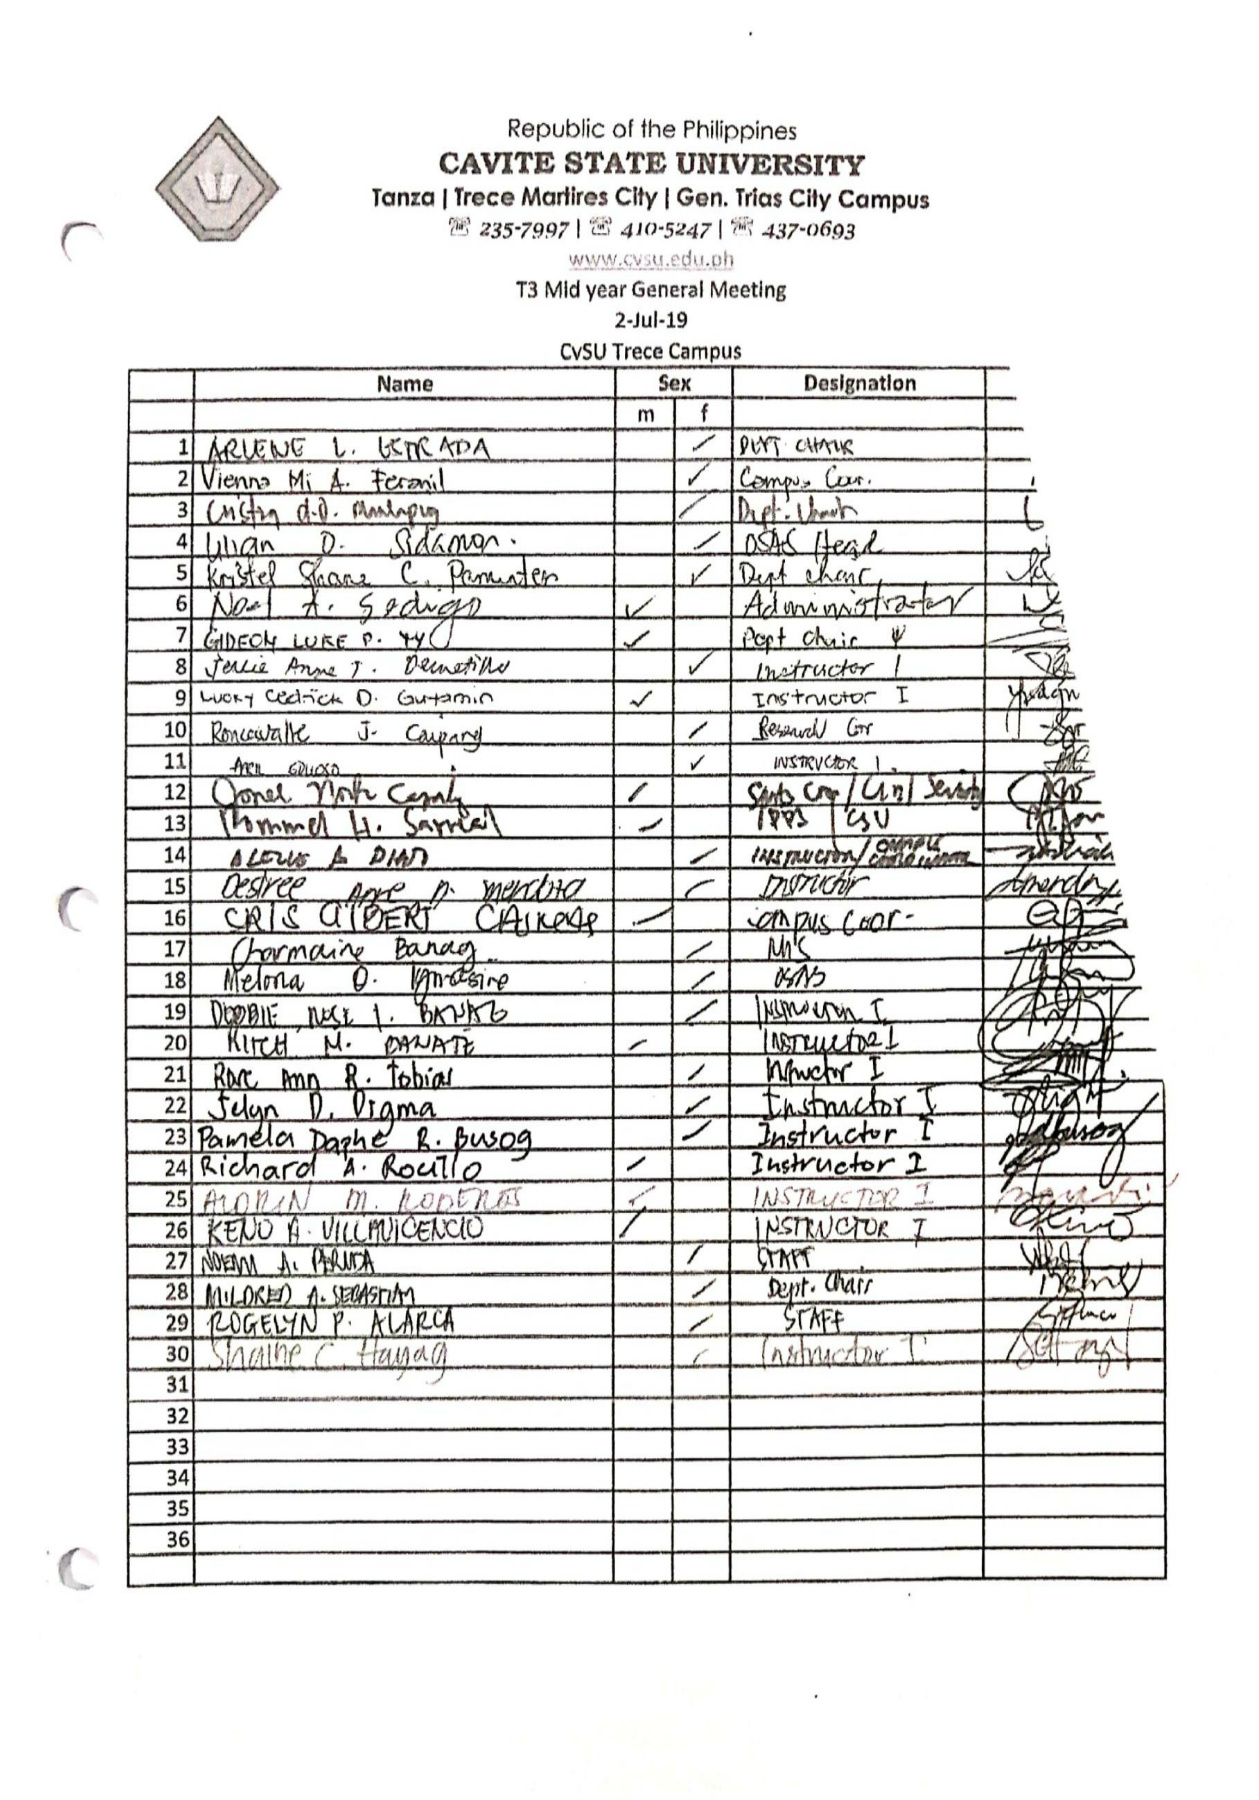 Republic of the Philippines
CAVITE STATE UNIVERSITY
Tanza | Trece Martires City | Gen. Trias City Campus
☏ 235-7997 | ☏ 410-5247 | ☏ 437-0693
www.cvsu.edu.ph
T3 Mid year General Meeting
2-Jul-19
CvSU Trece Campus
Name Sex Designation
m f
1 ARLENE L. ESTRADA ✓ DEPT CHAIR
2 Vienna Mi A. Feranil ✓ Campus Coor.
3 Cristza d.O. ✓ Dept. Chair
4 Lilian D. Sidamon. ✓ OSAS Head
5 Kristel Shane C. ✓ Dept chair
6 Noel A. Sedigo ✓ Administrator
7 GIDEON LUKE P. TY ✓ Dept chair
8 Anne T. Demetillo ✓ Instructor I
9 Lucky Cedrick D. Gutamin ✓ Instructor I
10 Roncesvalle J. Caipang ✓ Research Cor
11 ✓ INSTRUCTOR I
12 ✓
13 Rommel H. ✓
14 DIAN ✓ INSTRUCTOR/
15 Desiree Anne D. Mendoza ✓ Instructor
16 CRIS GILBERT ✓ Campus Coor-
17 Charmaine Banag ✓ MIS
18 Melona O. ✓ OSAS
19 DEBBIE ROSE I. BANAG ✓ INSTRUCTOR I
20 MITCH M. DANATE ✓ INSTRUCTOR I
21 Rose Ann R. Tobias ✓ Instructor I
22 Jelyn D. Digma ✓ Instructor I
23 Pamela Daphe R. Busog ✓ Instructor I
24 Richard A. Rocillo ✓ Instructor I
25 ALDRIN M. RODENAS ✓ INSTRUCTOR I
26 KENO A. VILLAVICENCIO ✓ INSTRUCTOR I
27 NOEMI A. ✓ STAFF
28 MILDRED A. SEBASTIAN ✓ Dept. Chair
29 ROGELYN P. ALARCA ✓ STAFF
30 Shaine C. Hayag ✓ Instructor I
31
32
33
34
35
36